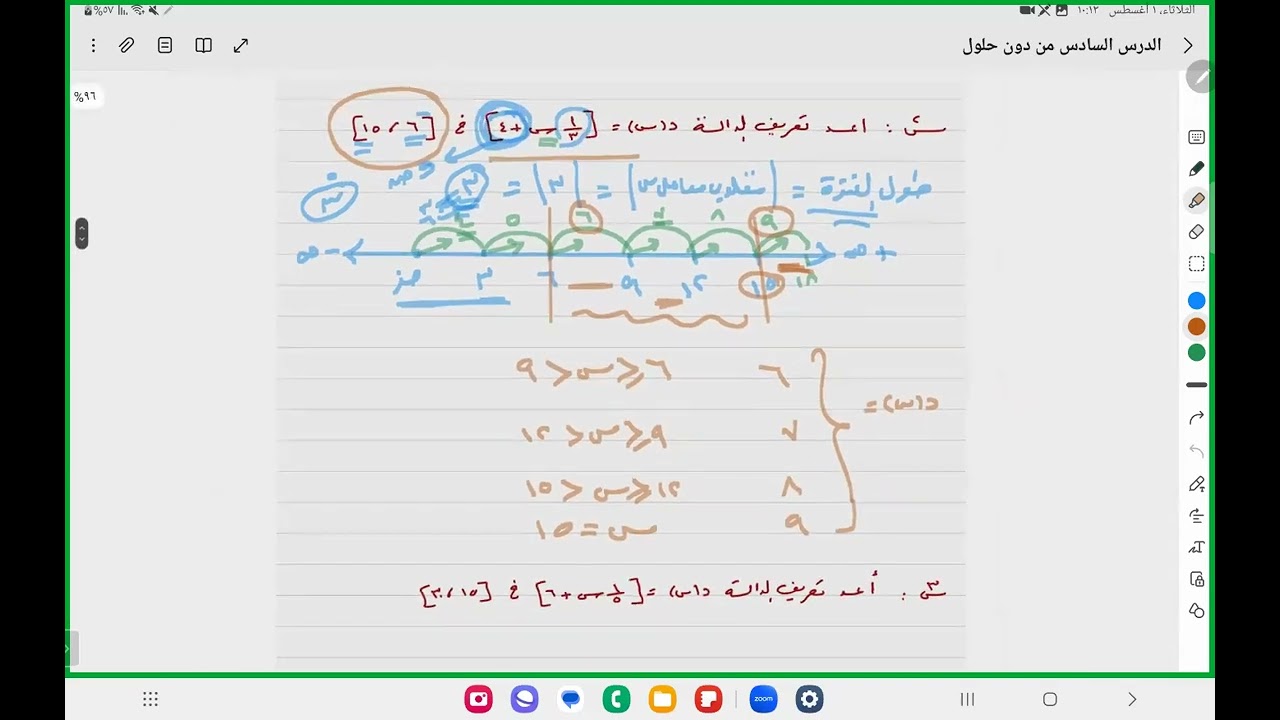 الثلاثاء، ١ أغسطس ١٠:١٣
%٥٧
الدرس السادس من دون حلول
%٩٦
س٢ : اعد تعريف الدالة د(س) = [١/٣ س + ٤] في [٦ ، ١٥]
طول الفترة = |مقلوب معامل س| = |٣| = ٣
٤ ٥ ٦ ٧ ٨ ٩
∞- ∞+
صفر ٣ ٦ ٩ ١٢ ١٥ ١٨
د(س) =
٦ ٦ ≤ س < ٩
٧ ٩ ≤ س < ١٢
٨ ١٢ ≤ س < ١٥
٩ س = ١٥
س٣ : أعد تعريف الدالة د(س) = [١/٥ س + ٦] في [١٥ ، ٣٠]
zoom